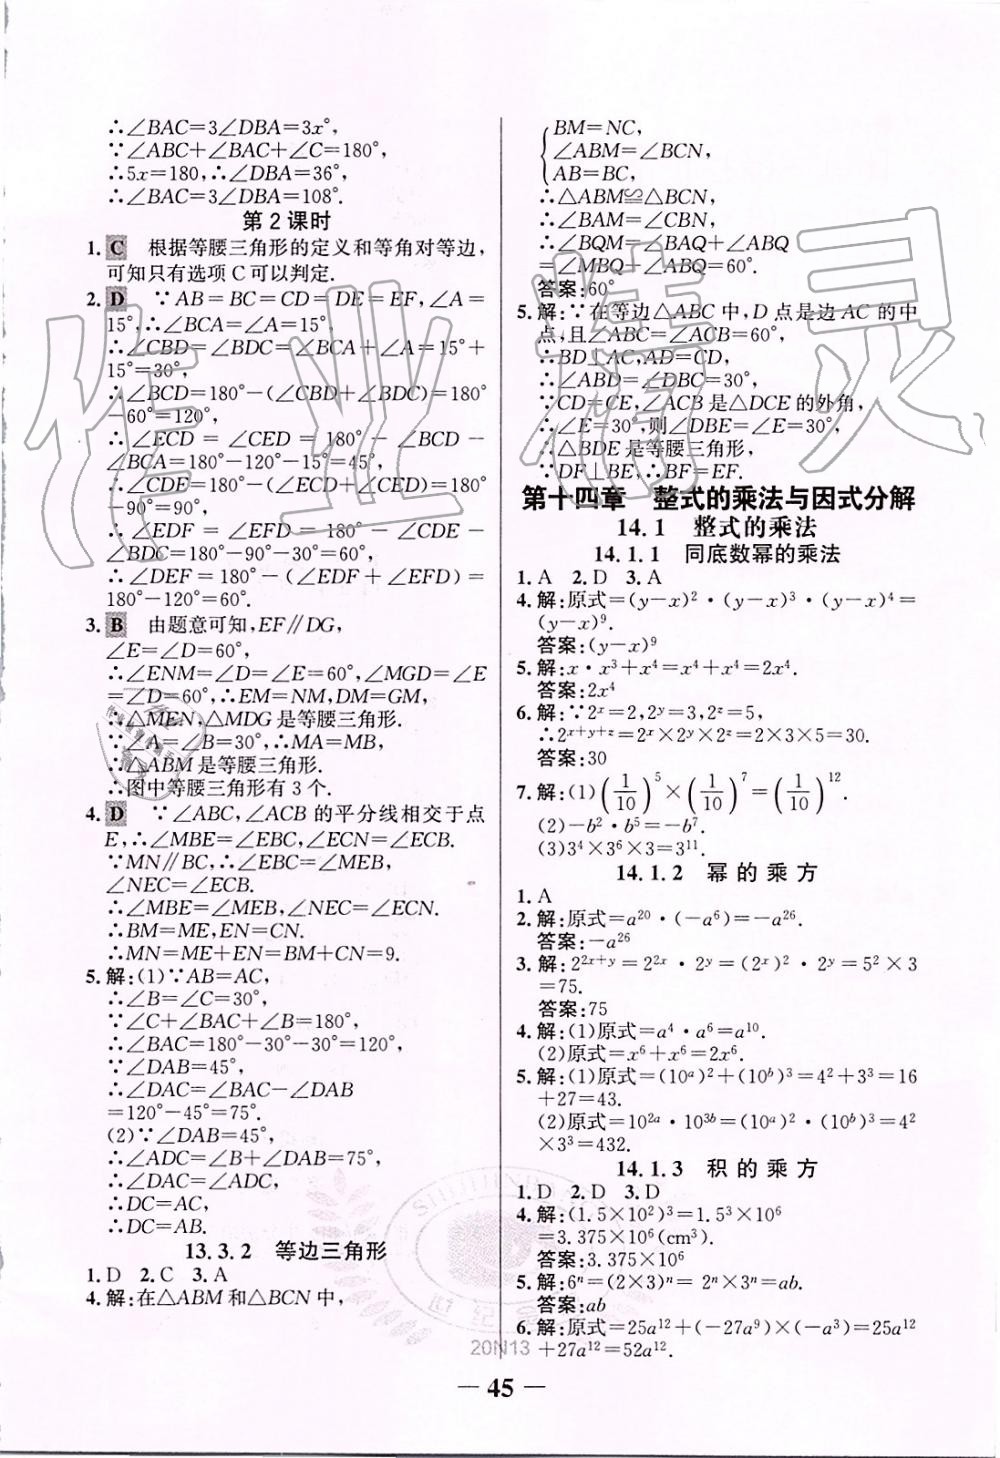 ∴∠BAC=3∠DBA=3x°,
∵∠ABC+∠BAC+∠C=180°,
∴5x=180,∴∠DBA=36°,
∴∠BAC=3∠DBA=108°.
第2课时
1. C 根据等腰三角形的定义和等角对等边,
可知只有选项C可以判定.
2. D ∵AB=BC=CD=DE=EF,∠A=
15°,∴∠BCA=∠A=15°,
∴∠CBD=∠BDC=∠BCA+∠A=15°+
15°=30°,
∴∠BCD=180°-(∠CBD+∠BDC)=180°
-60°=120°,
∴∠ECD=∠CED=180°-∠BCD-
∠BCA=180°-120°-15°=45°,
∴∠CDE=180°-(∠ECD+∠CED)=180°
-90°=90°,
∴∠EDF=∠EFD=180°-∠CDE-
∠BDC=180°-90°-30°=60°,
∴∠DEF=180°-(∠EDF+∠EFD)=
180°-120°=60°.
3. B 由题意可知,EF∥DG,
∠E=∠D=60°,
∴∠ENM=∠D=∠E=60°,∠MGD=∠E
=∠D=60°,∴EM=NM,DM=GM,
∴△MEN,△MDG是等腰三角形.
∵∠A=∠B=30°,∴MA=MB,
∴△ABM是等腰三角形.
∴图中等腰三角形有3个.
4. D ∵∠ABC,∠ACB的平分线相交于点
E,∴∠MBE=∠EBC,∠ECN=∠ECB.
∵MN∥BC,∴∠EBC=∠MEB,
∠NEC=∠ECB.
∴∠MBE=∠MEB,∠NEC=∠ECN.
∴BM=ME,EN=CN.
∴MN=ME+EN=BM+CN=9.
5. 解:(1)∵AB=AC,
∴∠B=∠C=30°,
∵∠C+∠BAC+∠B=180°,
∴∠BAC=180°-30°-30°=120°,
∵∠DAB=45°,
∴∠DAC=∠BAC-∠DAB
=120°-45°=75°.
(2)∵∠DAB=45°,
∴∠ADC=∠B+∠DAB=75°,
∴∠DAC=∠ADC,
∴DC=AC,
∴DC=AB.
13.3.2 等边三角形
1. D 2. C 3. A
4. 解:在△ABM和△BCN中,
BM=NC,
∠ABM=∠BCN,
AB=BC,
∴△ABM≌△BCN,
∴∠BAM=∠CBN,
∴∠BQM=∠BAQ+∠ABQ
=∠MBQ+∠ABQ=60°.
答案:60°
5. 解:∵在等边△ABC中,D点是边AC的中
点,且∠ABC=∠ACB=60°,
∴BD⊥AC,AD=CD,
∴∠ABD=∠DBC=30°,
∵CD=CE,∠ACB是△DCE的外角,
∴∠E=30°,则∠DBE=∠E=30°,
∴△BDE是等腰三角形,
∵DF⊥BE,∴BF=EF.
第十四章 整式的乘法与因式分解
14.1 整式的乘法
14.1.1 同底数幂的乘法
1. A 2. D 3. A
4. 解:原式=(y-x)²·(y-x)³·(y-x)⁴=
(y-x)⁹.
答案:(y-x)⁹
5. 解:x·x³+x⁴=x⁴+x⁴=2x⁴.
答案:2x⁴
6. 解:∵2ˣ=2,2ʸ=3,2ᶻ=5,
∴2ˣ⁺ʸ⁺ᶻ=2ˣ×2ʸ×2ᶻ=2×3×5=30.
答案:30
7. 解:(1)(1/10)⁵×(1/10)⁷=(1/10)¹².
(2)-b²·b⁵=-b⁷.
(3)3⁴×3⁶×3=3¹¹.
14.1.2 幂的乘方
1. A
2. 解:原式=a²⁰·(-a⁶)=-a²⁶.
答案:-a²⁶
3. 解:2²ˣ⁺ʸ=2²ˣ·2ʸ=(2ˣ)²·2ʸ=5²×3
=75.
答案:75
4. 解:(1)原式=a⁴·a⁶=a¹⁰.
(2)原式=x⁶+x⁶=2x⁶.
5. 解:(1)原式=(10ᵃ)²+(10ᵇ)³=4²+3³=16
+27=43.
(2)原式=10²ᵃ·10³ᵇ=(10ᵃ)²·(10ᵇ)³=4²
×3³=432.
14.1.3 积的乘方
1. D 2. D 3. D
4. 解:(1.5×10²)³=1.5³×10⁶
=3.375×10⁶(cm³).
答案:3.375×10⁶
5. 解:6ⁿ=(2×3)ⁿ=2ⁿ×3ⁿ=ab.
答案:ab
6. 解:原式=25a¹²+(-27a⁹)×(-a³)=25a¹²
+27a¹²=52a¹².
20N13
— 45 —
作业精灵